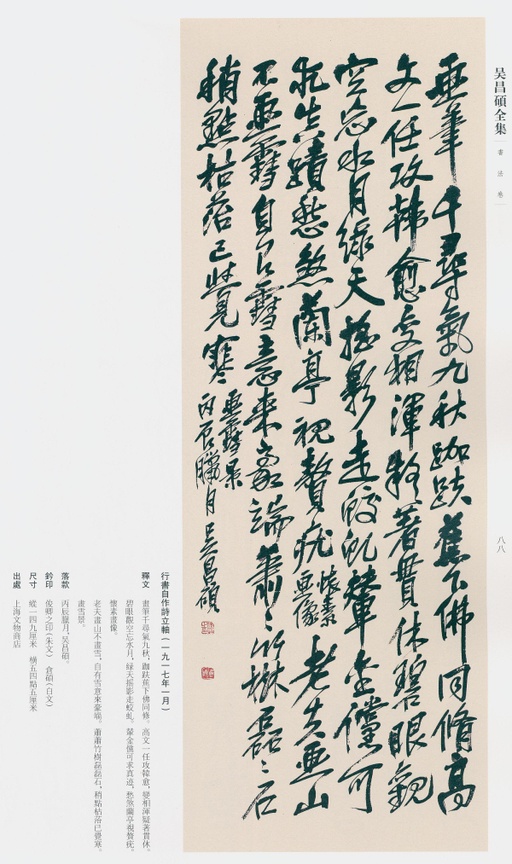 吴昌碩全集
書法卷
八八
畫筆千尋氣九秋跏趺蕉下佛同脩高
文一任攻韓愈變相渾疑著貫休碧眼觀
空忘水月綠天搖影走蛟虬輦金儻可
求真蹟愁煞蘭亭視贅疣 懷素畫像 老夫畫山
不畫雪自有雪意來豪端蕭蕭竹樹磊磊石
稍點枯苔已覺寒 畫雪景
丙辰臘月吳昌碩
行書自作詩立軸(一九一七年一月)
釋文 畫筆千尋氣九秋,跏趺蕉下佛同脩。高文一任攻韓愈,變相渾疑著貫休。
碧眼觀空忘水月,綠天搖影走蛟虬。輦金儻可求真迹,愁煞蘭亭視贅疣。
懷素畫像。
老夫畫山不畫雪,自有雪意來豪端。蕭蕭竹樹磊磊石,稍點枯苔已覺寒。
畫雪景。
落款 丙辰臘月,吴昌碩。
鈐印 俊卿之印(朱文) 倉碩(白文)
尺寸 縱一四九厘米 橫五四點五厘米
出處 上海文物商店